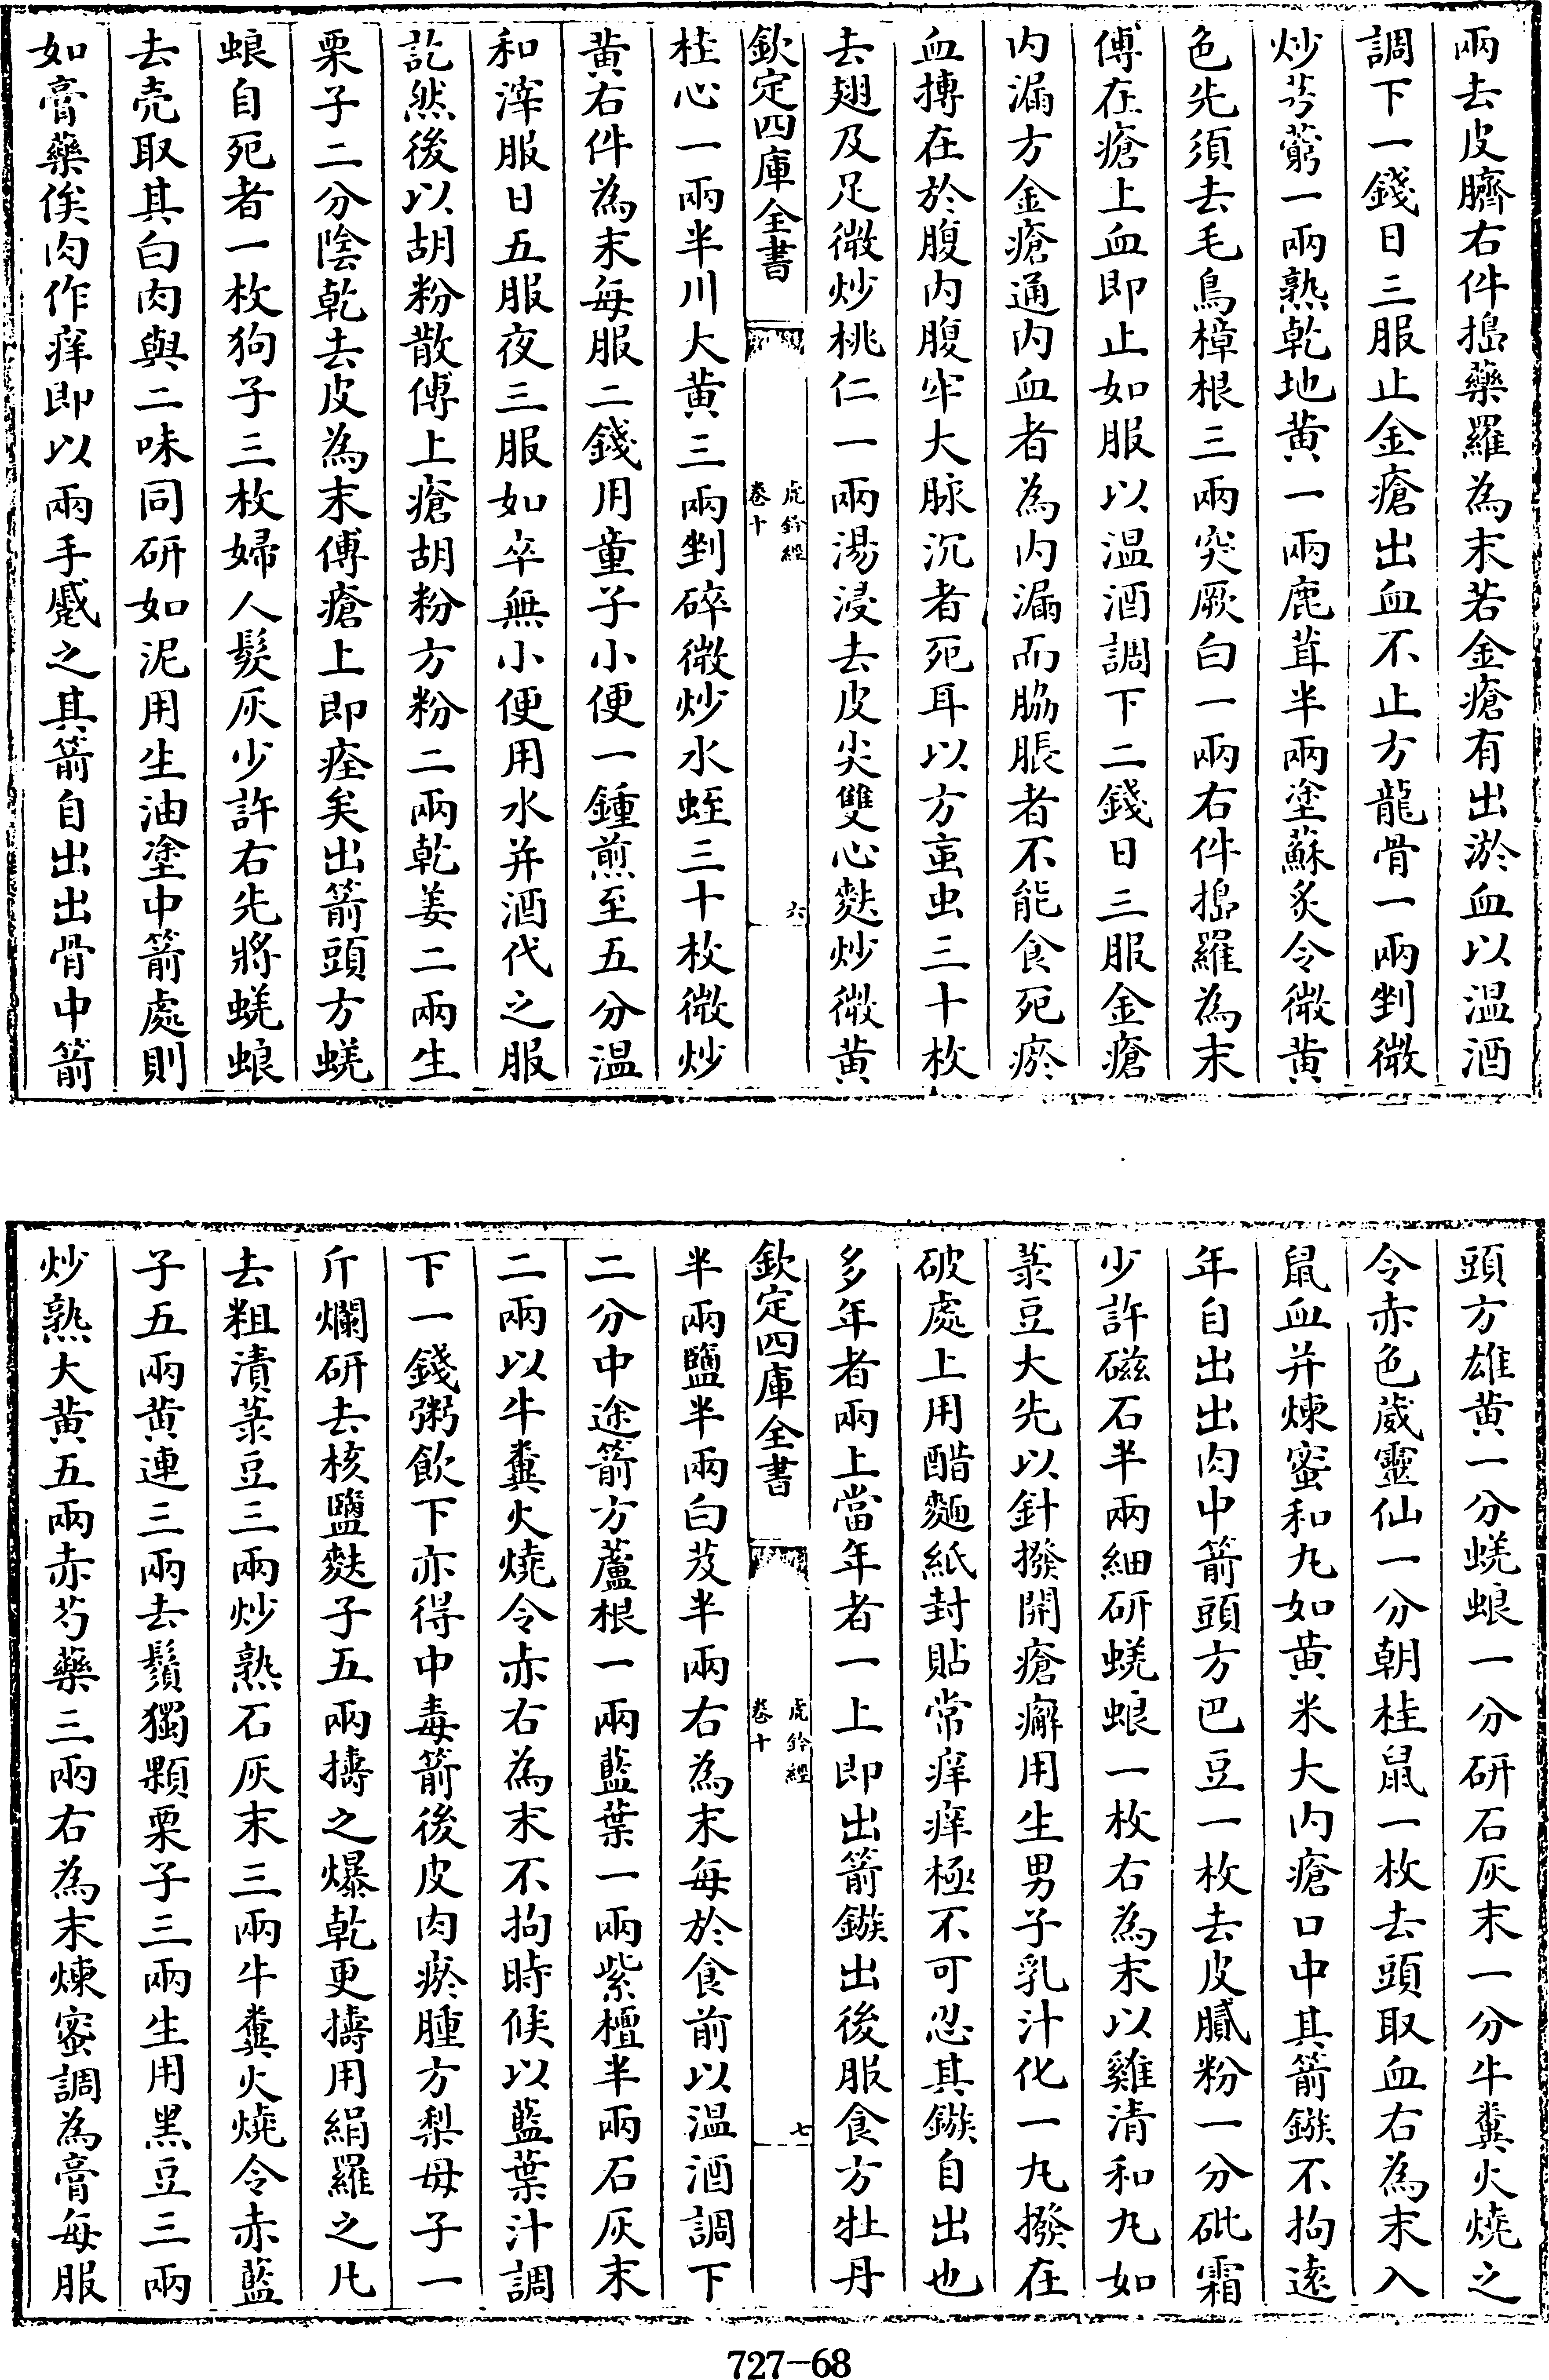 兩去皮臍右件搗藥羅為末若金瘡有出淤血以温酒
調下一錢日三服止金瘡出血不止方龍骨一兩剉微
炒芎藭一兩熟乾地黄一兩鹿茸半兩塗蘇炙令微黄
色先須去毛烏樟根三兩突厥白一兩右件搗羅為末
傅在瘡上血即止如服以温酒調下二錢日三服金瘡
内漏方金瘡通内血者為内漏而脇脹者不能食死瘀
血摶在於腹内腹牢大脉沉者死耳以方䖟虫三十枚
去翅及足微炒桃仁一兩湯浸去皮尖雙心麩炒微黄
欽定四庫全書
虎鈐經
卷十
六
桂心一兩半川大黄三兩剉碎微炒水蛭三十枚微炒
黄右件為末每服二錢用童子小便一鍾煎至五分温
和滓服日五服夜三服如卒無小便用水并酒代之服
訖然後以胡粉散傅上瘡胡粉方粉二兩乾姜二兩生
栗子二分陰乾去皮為末傅瘡上即痊矣出箭頭方蜣
蜋自死者一枚狗子三枚婦人髮灰少許右先將蜣蜋
去壳取其白肉與二味同研如泥用生油塗中箭處則
如膏藥俟肉作痒即以兩手蹙之其箭自出出骨中箭
頭方雄黄一分蜣蜋一分研石灰末一分牛糞火燒之
令赤色葳靈仙一分朝桂鼠一枚去頭取血右為末入
鼠血并煉蜜和丸如黄米大内瘡口中其箭鏃不拘遠
年自出出肉中箭頭方巴豆一枚去皮膩粉一分砒霜
少許磁石半兩細研蜣蜋一枚右為末以雞清和丸如
菉豆大先以針撥開瘡癬用生男子乳汁化一丸撥在
破處上用醋麵紙封貼常痒痒極不可忍其鏃自出也
多年者兩上當年者一上即出箭鏃出後服食方牡丹
欽定四庫全書
虎鈐經
卷十
七
半兩鹽半兩白芨半兩右為末每於食前以温酒調下
二分中途箭方蘆根一兩藍葉一兩紫檀半兩石灰末
二兩以牛糞火燒令赤右為末不拘時候以藍葉汁調
下一錢粥飲下亦得中毒箭後皮肉瘀腫方梨母子一
斤爛研去核鹽麩子五兩擣之爆乾更擣用絹羅之凡
去粗漬菉豆三兩炒熟石灰末三兩牛糞火燒令赤藍
子五兩黄連三兩去鬚獨顆栗子三兩生用黒豆三兩
炒熟大黄五兩赤芍藥三兩右為末煉蜜調為膏每服
727-68